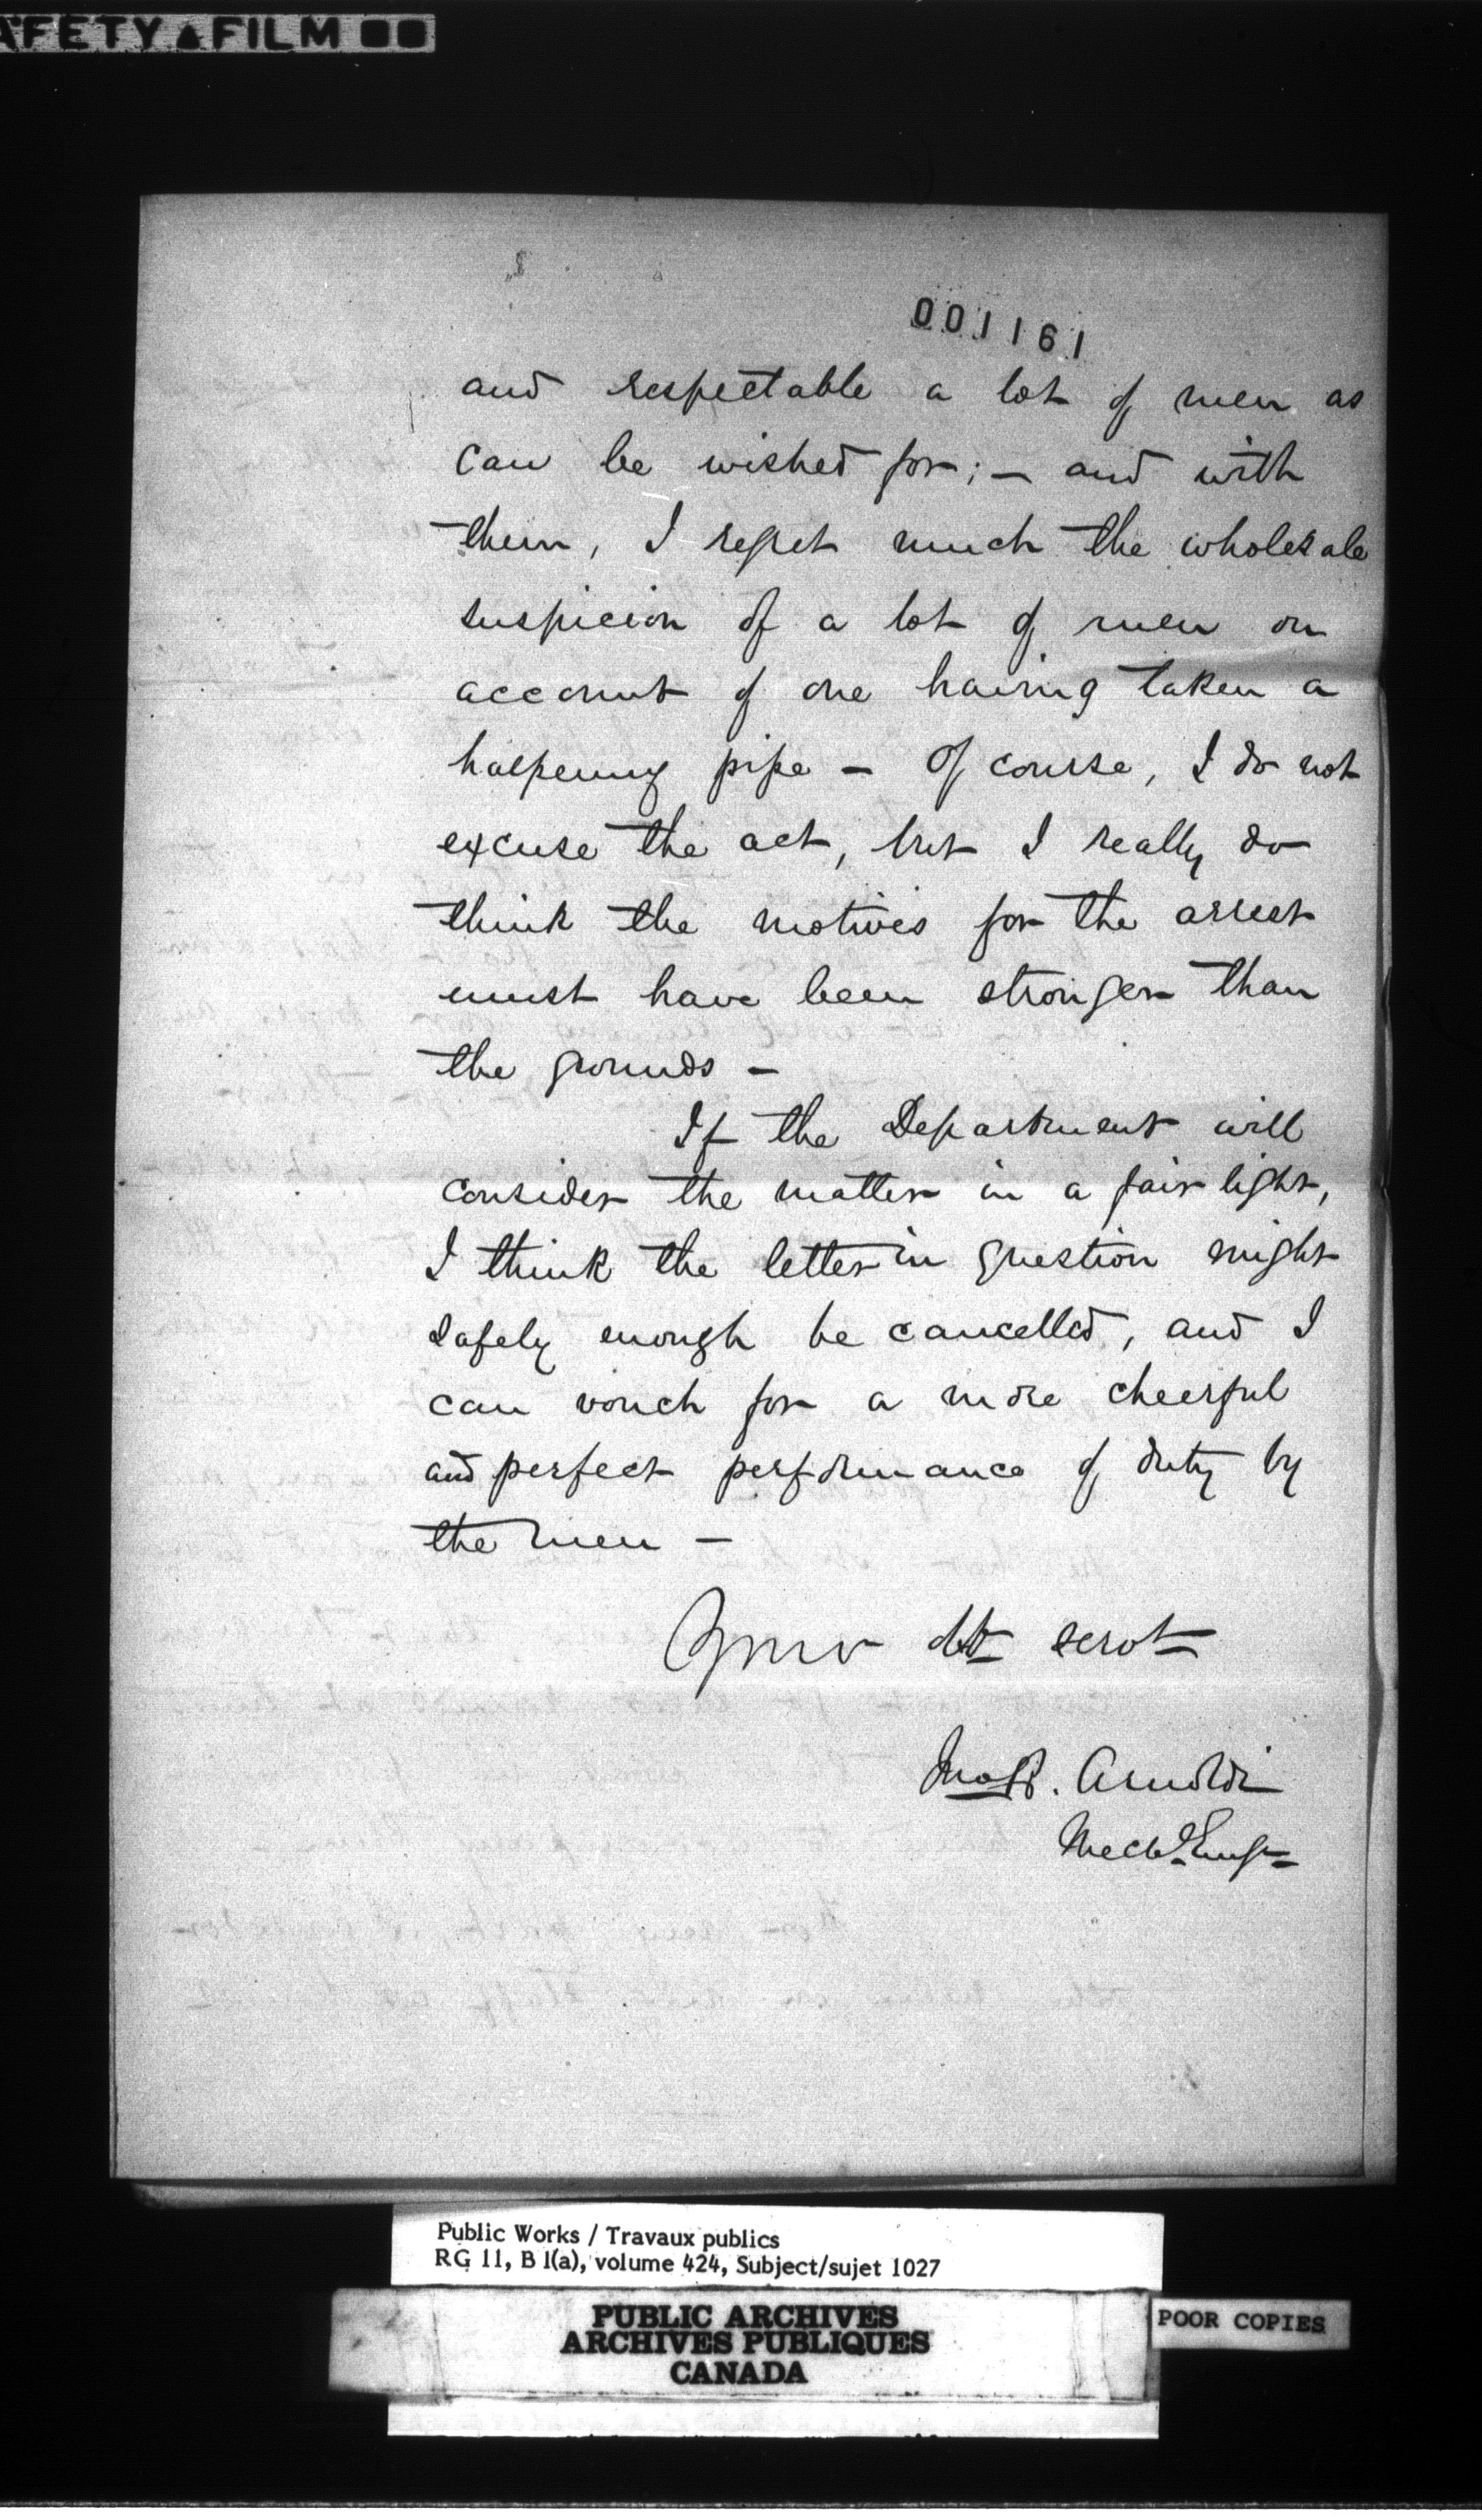 AFETY FILM
001161
and respectable a lot of men as
can be wished for; — and with
them, I regret much the wholesale
suspicion of a lot of men on
account of one having taken a
halpenny pipe — Of course, I do not
excuse the act, but I really do
think the motives for the arrest
must have been stronger than
the grounds —
If the Department will
consider the matter in a fair light,
I think the letter in question might
safely enough be cancelled, and I
can vouch for a more cheerful
and perfect performance of duty by
the men —
Your obt servt
Jno R. Arnoldi
Mechl Engr
Public Works / Travaux publics
RG 11, B 1(a), volume 424, Subject/sujet 1027
PUBLIC ARCHIVES
ARCHIVES PUBLIQUES
CANADA
POOR COPIES